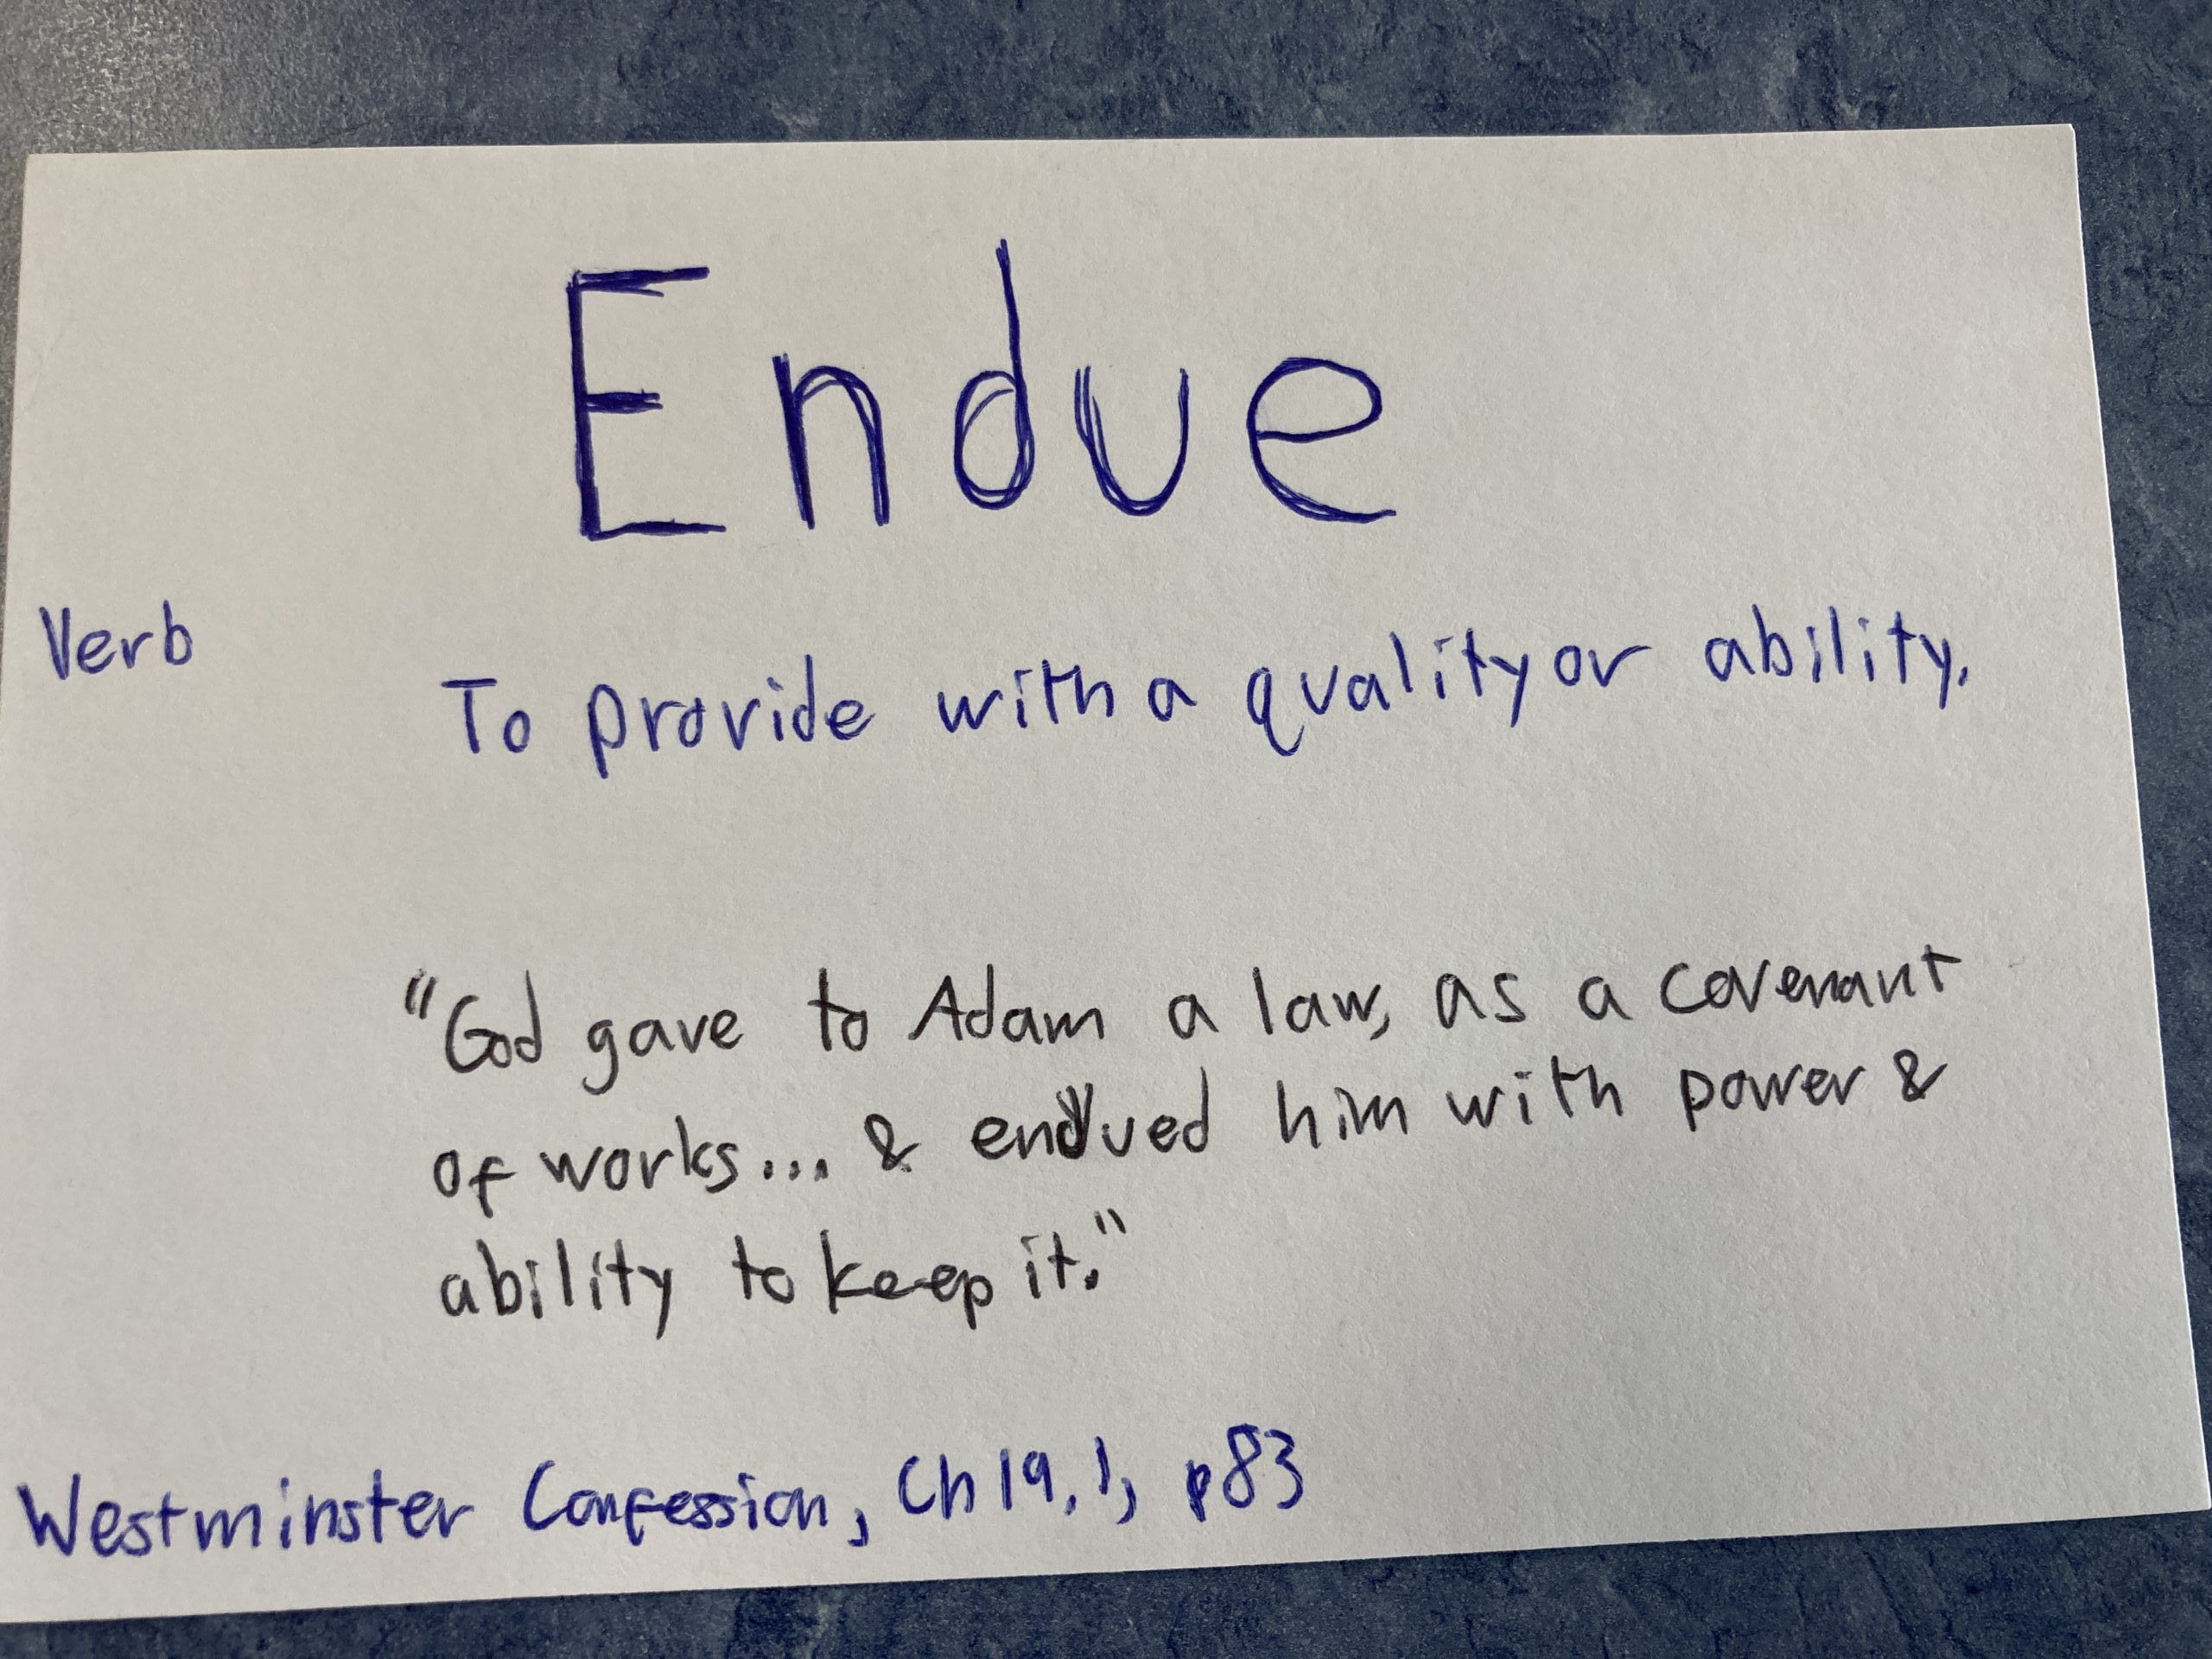 Endue
Verb
To provide with a quality or ability.
"God gave to Adam a law, as a covenant
of works... & endued him with power &
ability to keep it."
Westminster Confession, Ch 19.1, p83